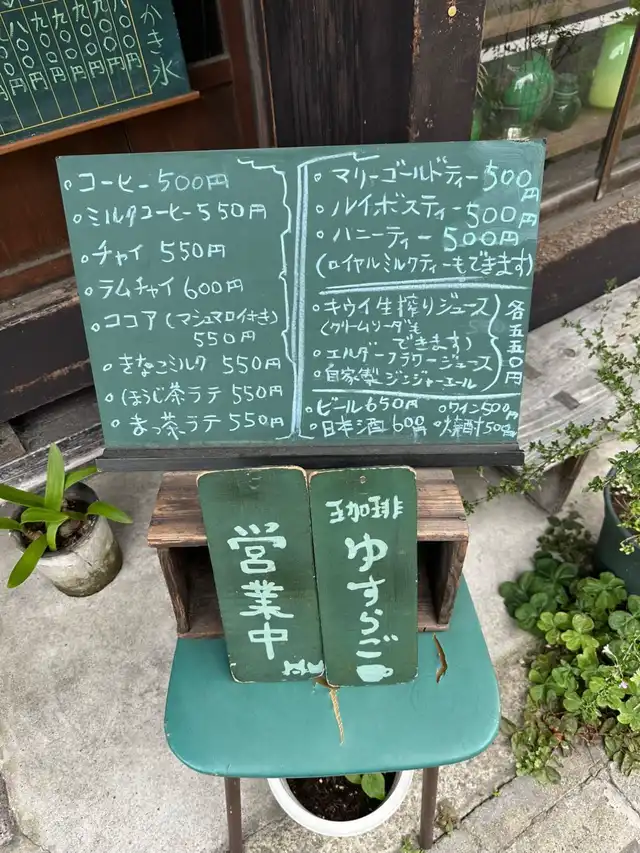 かき氷
コーヒー 500円
ミルクコーヒー 550円
チャイ 550円
ラムチャイ 600円
ココア (マシュマロイ付き)
550円
きなこミルク 550円
ほうじ茶ラテ 550円
まっ茶ラテ 550円
マリーゴールドティー 500円
ルイボスティー 500円
ハニーティー 500円
(ロイヤルミルクティーもできます)
キウイ生搾りジュース
(クリームソーダも
できます)
エルダーフラワージュース
自家製ジンジャーエール
各五五〇円
ビール 650円 ワイン500円
日本酒 600円 焼酎500円
珈琲
ゆすらご
営業中